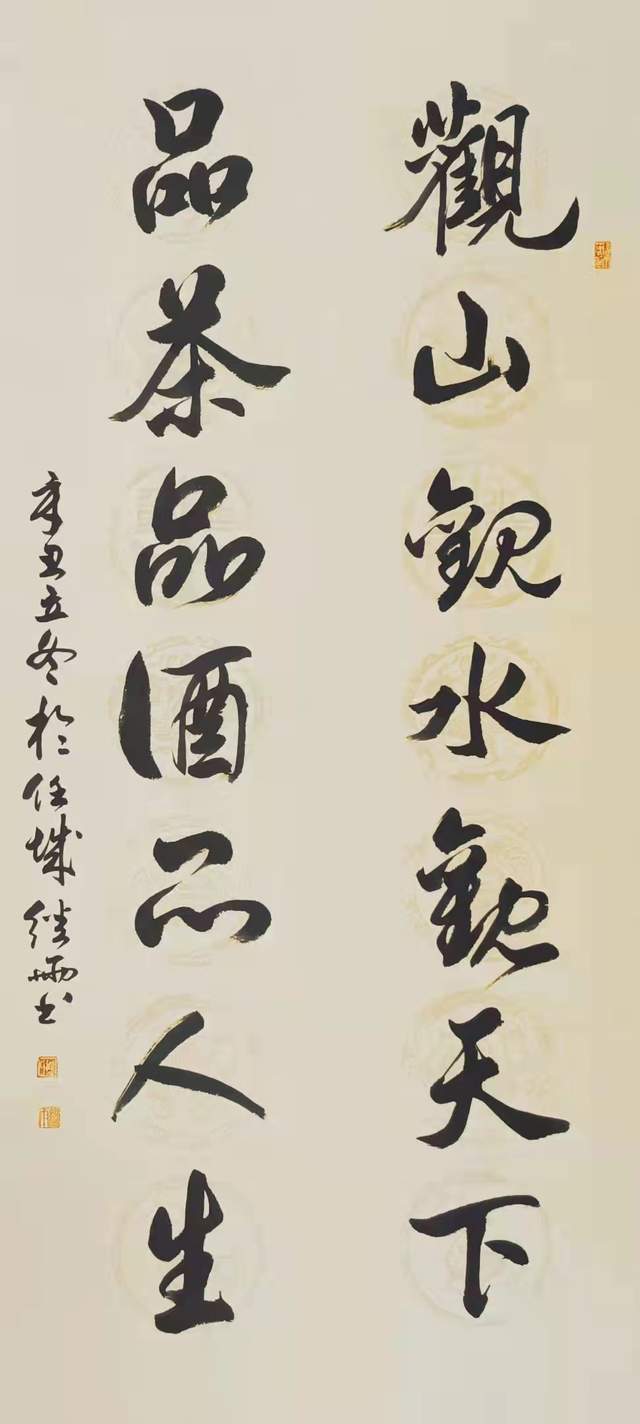 觀山觀水觀天下
品茶品酒品人生
辛丑立冬於任城 继雨书